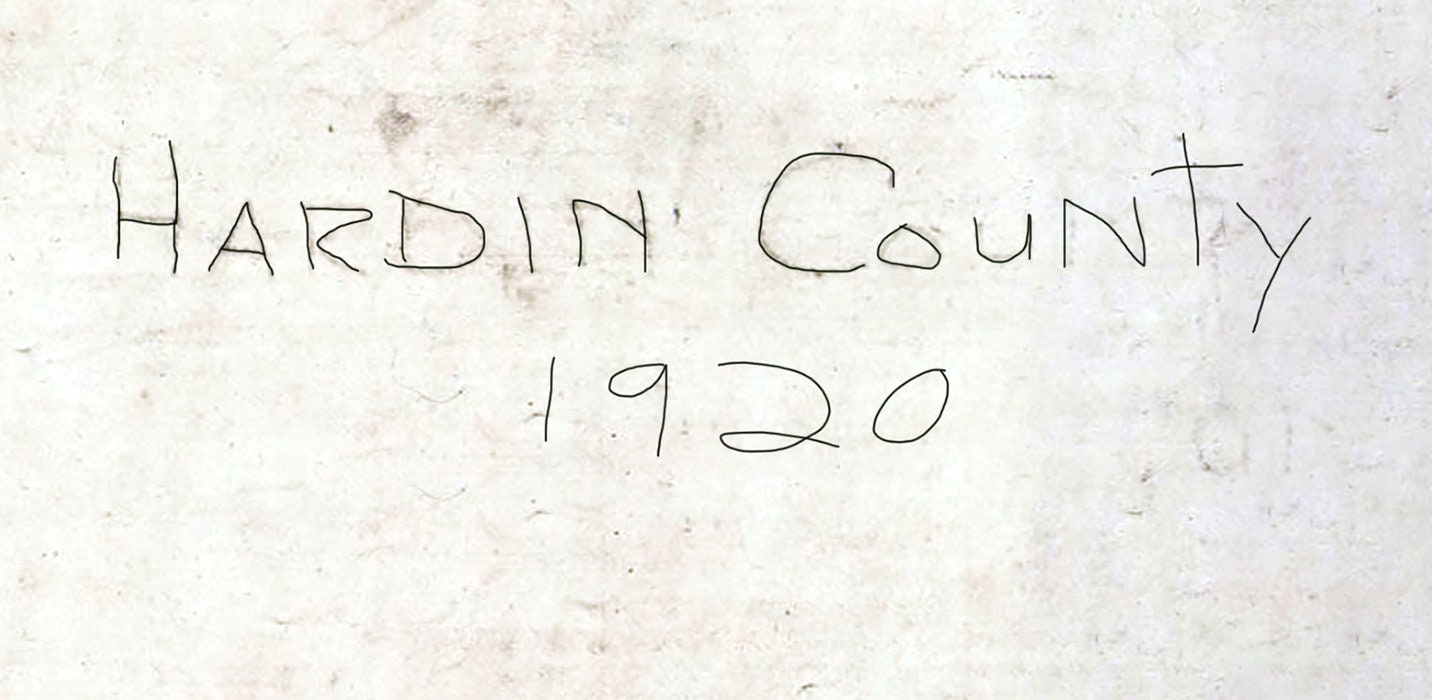 HARDIN COUNTY
1920